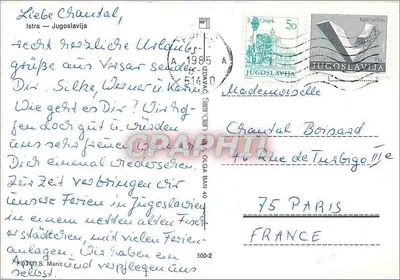 Liebe Chantal,
Istra — Jugoslavija
recht herzliche Urlaubs-
grüße aus Vrsar senden
Dir Silke, Werner u. Karin.
Wie geht es Dir? Wir hof-
fen doch gut u. würden
uns sehr freuen
Dich einmal wiedersehen.
Zur Zeit verbringen wir
unsere Ferien in Jugoslawien
in einem netten alten Fisch-
erstädtchen, mit vielen Ferien-
anlagen. Wir haben ein
und verpflegen uns
selbst.
S. Marić
500-2
IZDAVAČ
OLGA BAN 49
1985
51450
Osijek
50
JUGOSLAVIJA
JUGOSLAVIJA
Mademoiselle
Chantal Bossard
46 Rue de Turbigo IIIe
75 PARIS
FRANCE
CPAPHIL.COM